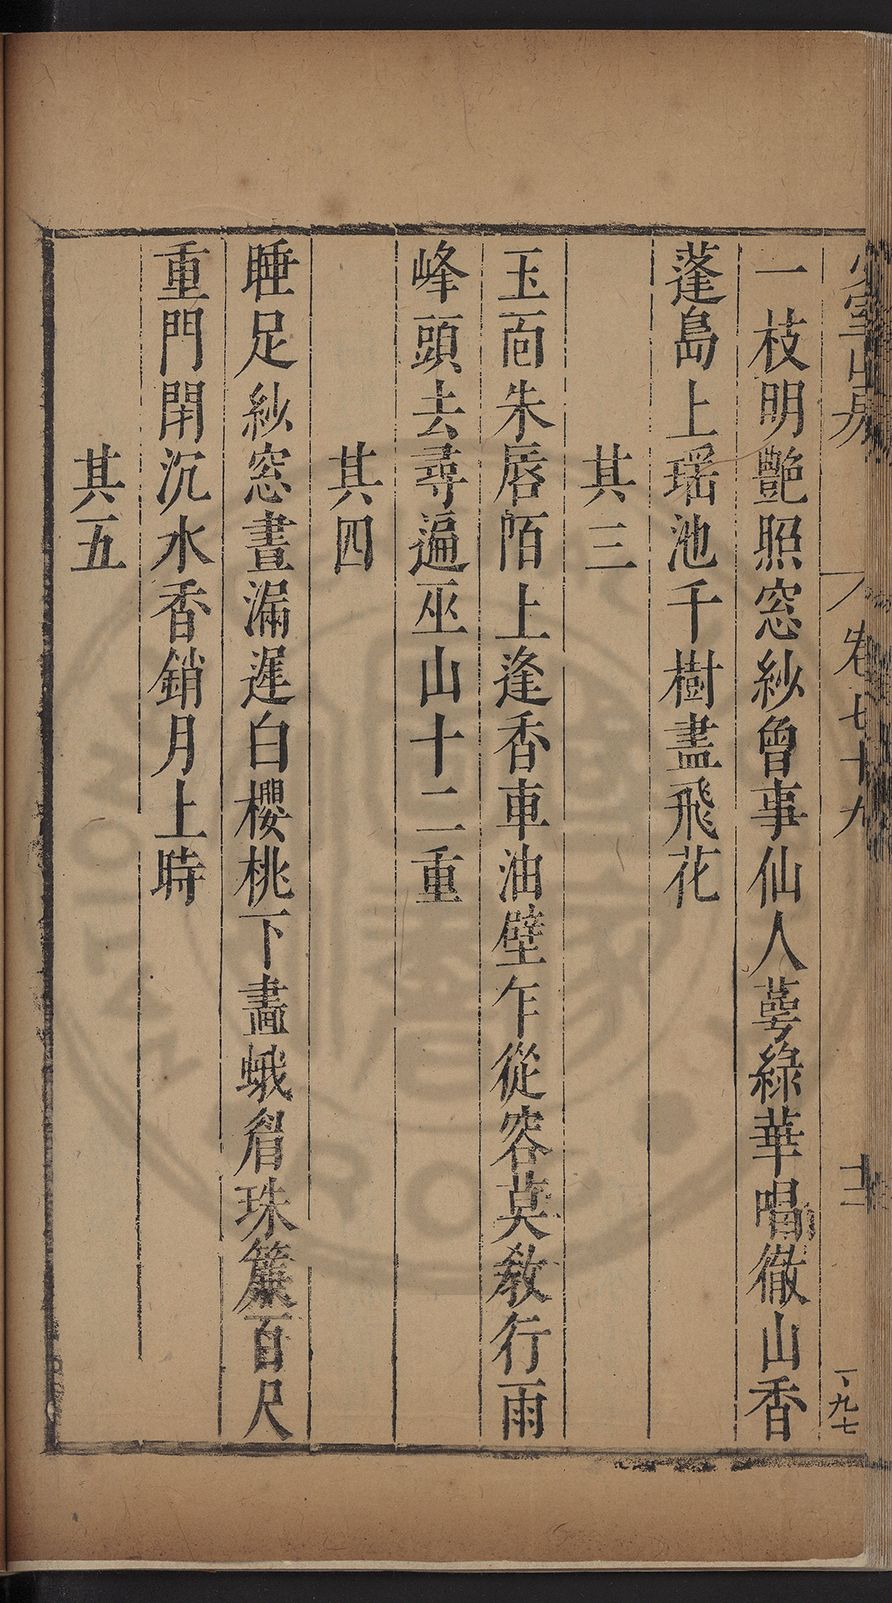 少室山房 卷七十九 十二 一、九七
一枝明艷照窓紗曾事仙人萼綠華唱徹山香
蓬島上瑶池千樹盡飛花
其三
玉面朱唇陌上逢香車油壁乍從容莫敎行雨
峰頭去尋遍巫山十二重
其四
睡足紗窓晝漏遲白櫻桃下畵蛾眉珠簾百尺
重門閉沉水香銷月上時
其五